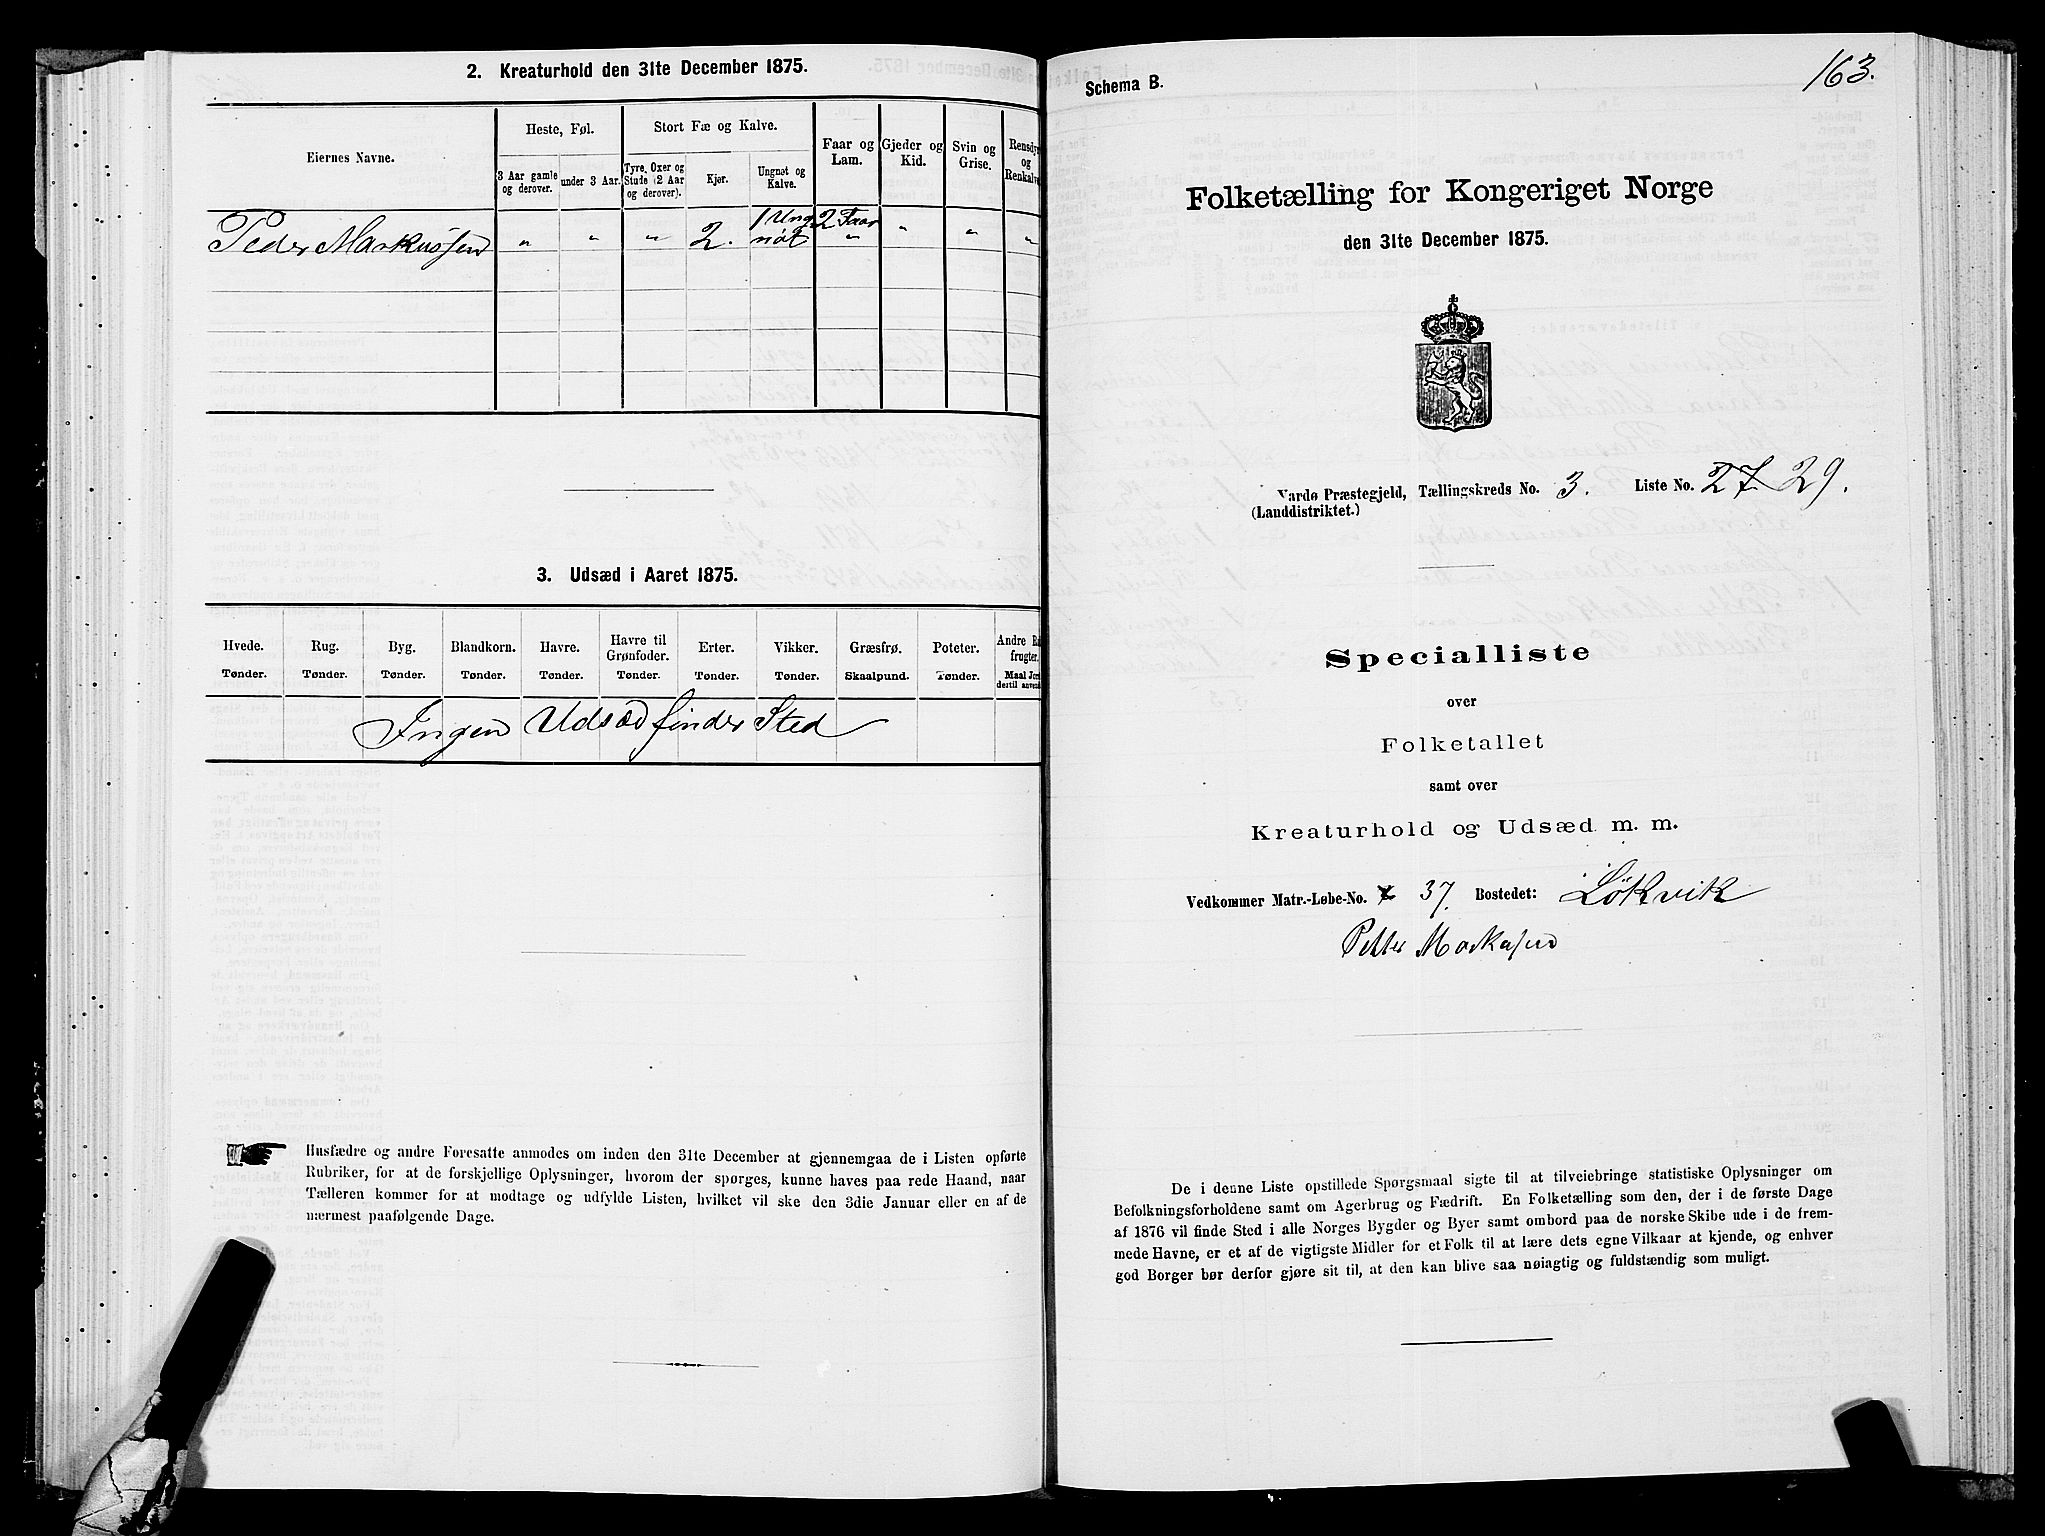 2. Kreaturhold den 31te December 1875.
Eiernes Navne.
Heste, Føl.
Stort Fæ og Kalve.
Faar og Lam.
Gjeder og Kid.
Svin og Grise.
Rensdyr og Renkalve
3 Aar gamle og derover.
under 3 Aar.
Tyre, Oxer og Stude (2 Aar og derover).
Kjør.
Ungnøt og Kalve.
Peder Markussen " " " 2. 1 Ungnøt 2 Faar " " " "
3. Udsæd i Aaret 1875.
Hvede. Rug. Byg. Blandkorn. Havre. Havre til Grønfoder. Erter. Vikker. Græsfrø. Poteter. Andre Ro frugter.
Tønder. Tønder. Tønder. Tønder. Tønder. Tønder. Tønder. Tønder. Skaalpund. Tønder. Maal Jor dertil anvend
Ingen Udsæd finder Sted
Husfædre og andre Foresatte anmodes om inden den 31te December at gjennemgaa de i Listen opførte
Rubriker, for at de forskjellige Oplysninger, hvorom der spørges, kunne haves paa rede Haand, naar
Tælleren kommer for at modtage og udfylde Listen, hvilket vil ske den 3die Januar eller en af de
nærmest paafølgende Dage.
163.
Schema B.
Folketælling for Kongeriget Norge
den 31te December 1875.
Vardø Præstegjeld, Tællingskreds No. 3. Liste No. 27 29.
(Landdistriktet.)
Specialliste
over
Folketallet
samt over
Kreaturhold og Udsæd m. m.
Vedkommer Matr.-Løbe-No. 37. Bostedet: Løkvik
Petter Markusen
De i denne Liste opstillede Spørgsmaal sigte til at tilveiebringe statistiske Oplysninger om
Befolkningsforholdene samt om Agerbrug og Fædrift. En Folketælling som den, der i de første Dage
af 1876 vil finde Sted i alle Norges Bygder og Byer samt ombord paa de norske Skibe ude i de frem-
mede Havne, er et af de vigtigste Midler for et Folk til at lære dets egne Vilkaar at kjende, og enhver
god Borger bør derfor gjøre sit til, at den kan blive saa nøiagtig og fuldstændig som muligt.